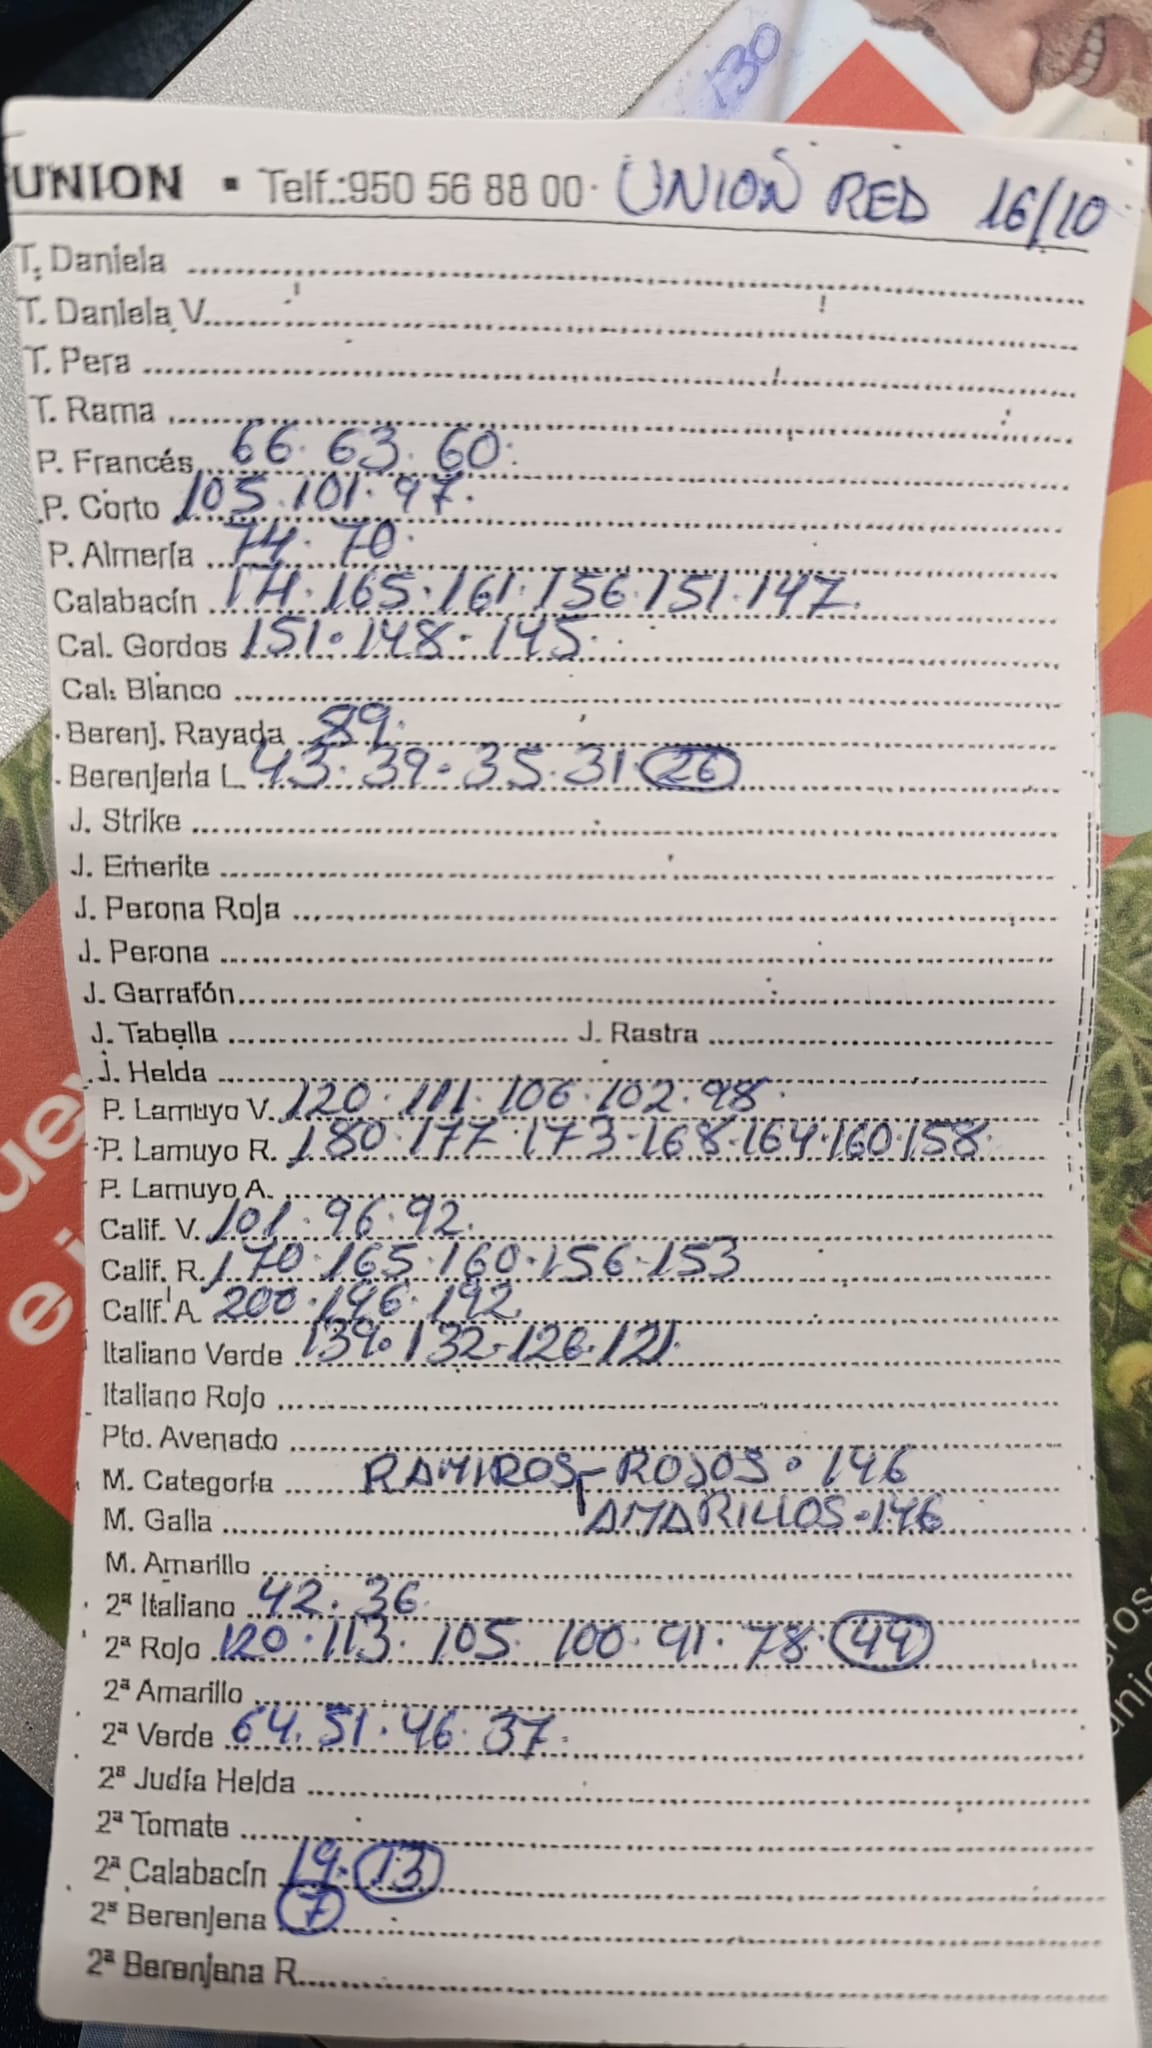 130
UNION ▪ Telf.:950 56 88 00· UNION RED 16/10
T. Daniela
T. Daniela V.
T. Pera
T. Rama
P. Francés 66. 63. 60.
P. Corto 105. 101. 97.
P. Almería 74. 70.
Calabacín 171. 165. 161. 156. 151. 147.
Cal. Gordos 151. 148. 145.
Cal. Blanco
Berenj. Rayada 89.
Berenjena L. 43. 39. 35. 31. 26
J. Strike
J. Emerite
J. Perona Roja
J. Perona
J. Garrafón
J. Tabella J. Rastra
J. Helda
P. Lamuyo V. 120. 111. 106. 102. 98.
P. Lamuyo R. 180. 177. 173. 168. 164. 160. 158.
P. Lamuyo A.
Calif. V. 101. 96. 92.
Calif. R. 170. 165. 160. 156. 153
Calif. A. 200. 196. 192
Italiano Verde 139. 132. 126. 121.
Italiano Rojo
Pto. Avenado
M. Categoría RAMIROS - ROJOS. 146
M. Galia AMARILLOS. 146
M. Amarillo
2ª Italiano 42. 36.
2ª Rojo 120. 113. 105. 100. 91. 78. 49
2ª Amarillo
2ª Verde 64. 51. 46. 37.
2ª Judía Helda
2ª Tomate
2ª Calabacín 19. 13
2ª Berenjena 7
2ª Berenjena R.